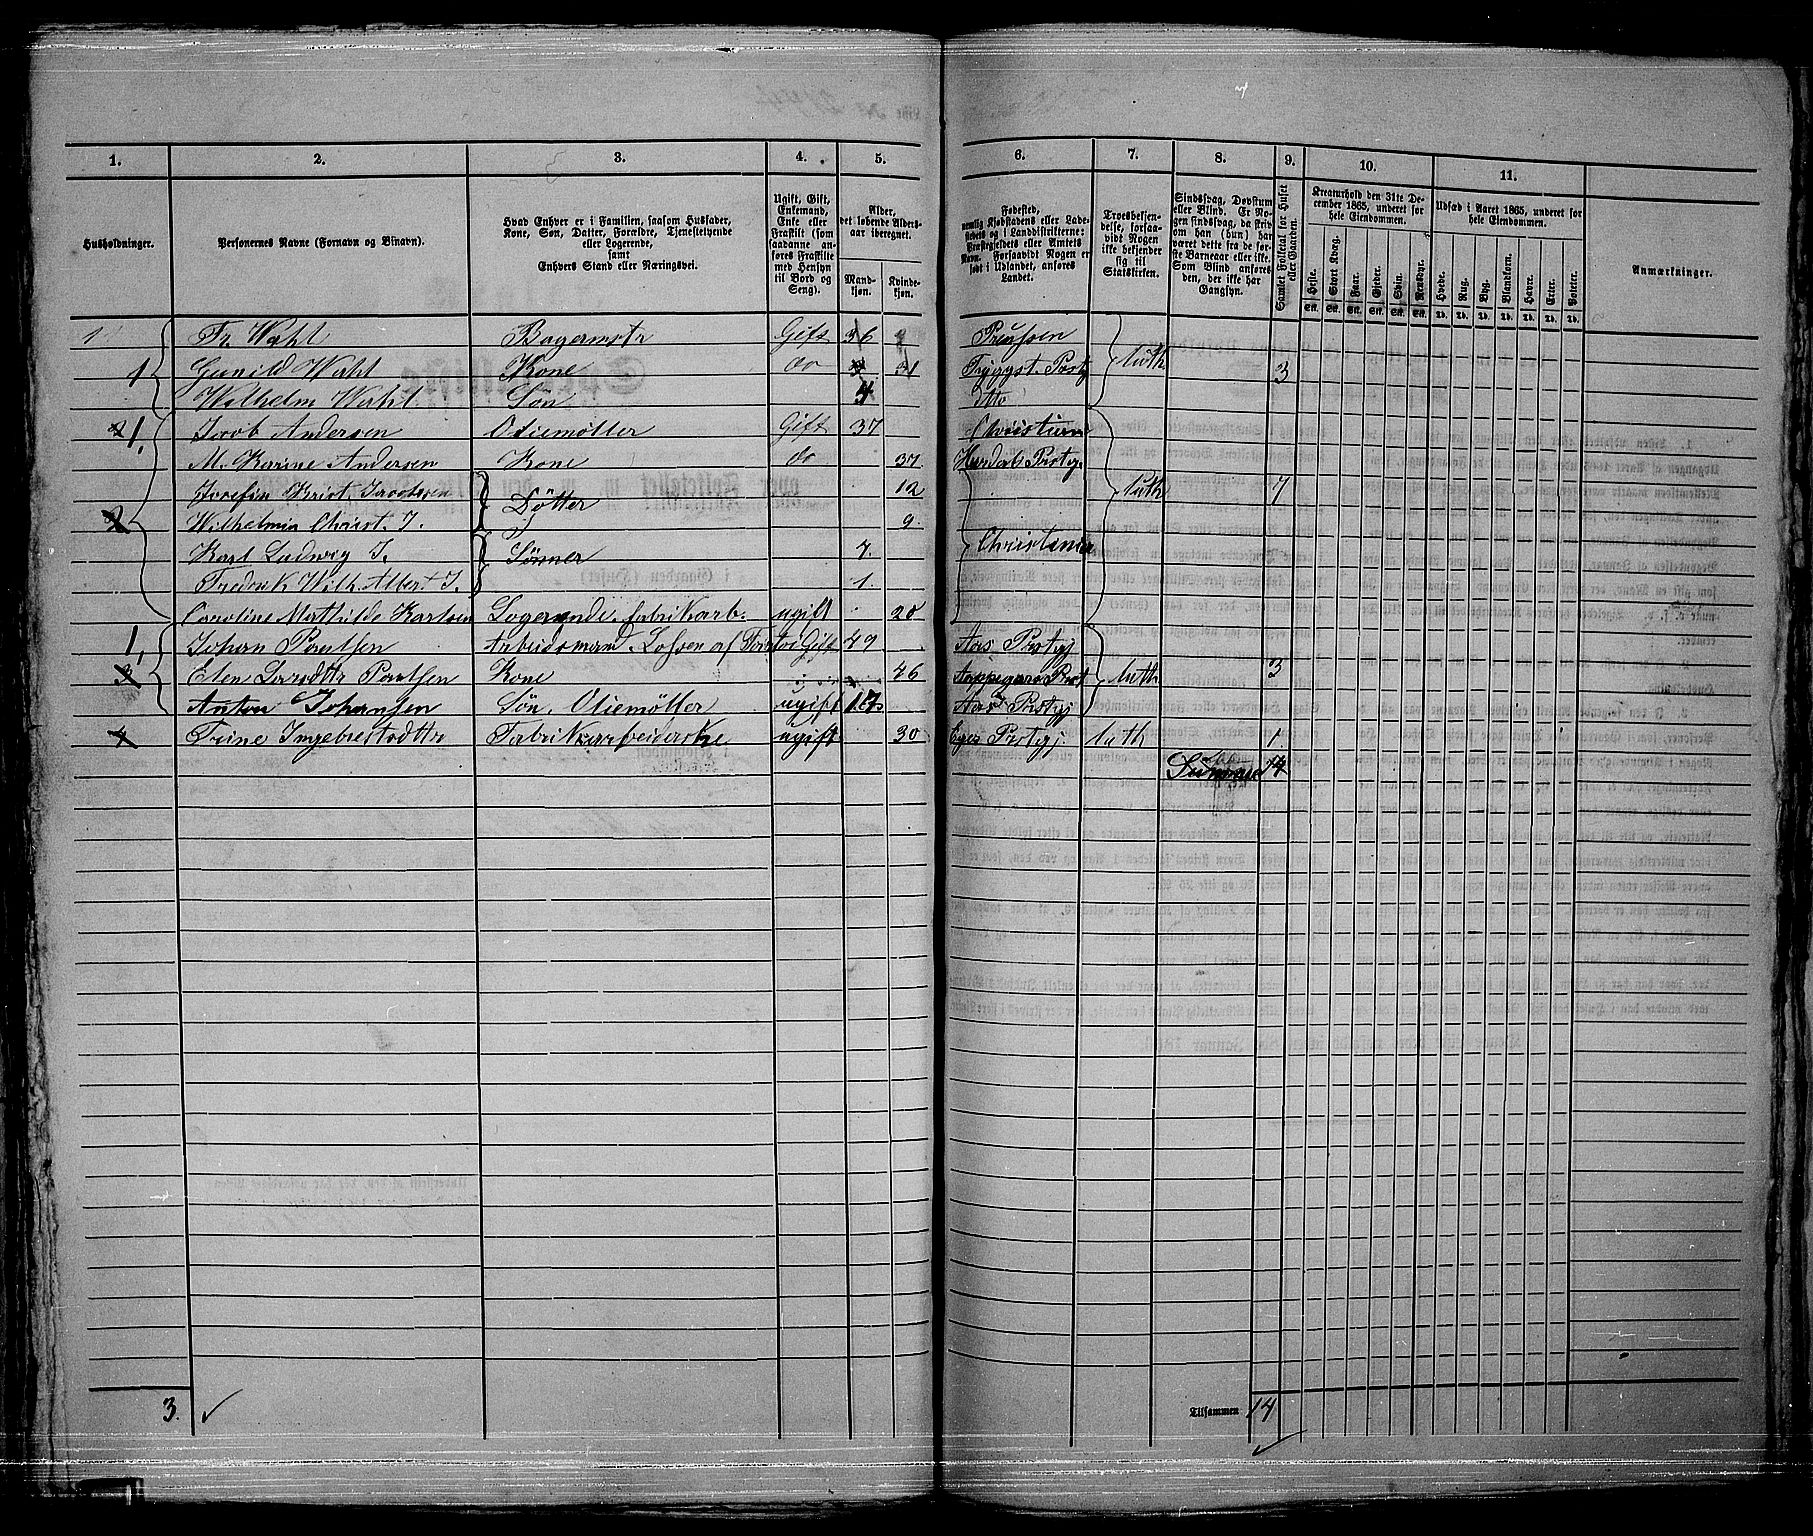 1. 2. 3. 4. 5. 6. 7. 8. 9. 10. 11.
Husholdninger.
Personernes Navne (Fornavn og Binavn).
Hvad Enhver er i Familien, saasom Husfader, Kone, Søn, Datter, Forældre, Tjenestetyende eller Logerende, samt Enhvers Stand eller Næringsvei.
Ugift, Gift, Enkemand, Enke eller Fraskilt (som saadanne anføres Fraskilte med Hensyn til Bord og Seng).
Alder, det løbende Aldersaar iberegnet.
Mandkjøn. Kvindekjøn.
Fødested, nemlig Kjøbstadens eller Ladestedets og i Landdistrikterne: Præstegjeldets eller Amtets Navn. Forsaavidt Nogen er født i Udlandet, anføres Landet.
Troesbekjendelse, forsaavidt Nogen ikke bekjender sig til Statskirken.
Sindssvag, Døvstum eller Blind. Er Nogen sindssvag, da skrives om han (hun) har været dette fra de første Barneaar eller ikke. Som Blind anføres den, der ikke har Gangsyn.
Samlet Folketal for Huset eller Gaarden.
Kreaturhold den 31te December 1865, underet for hele Eiendommen.
Heste. Stort Kvæg. Faar. Gjeder. Svin. Rensdyr.
Udsæd i Aaret 1865, underet for hele Eiendommen.
Hvede. Rug. Byg. Blankorn. Havre. Erter. Poteter.
Anmærkninger.
Stk. Stk. Stk. Stk. Stk. Stk. Td. Td. Td. Td. Td. Td. Td.
1 Fr. Wahl Bagermstr Gift 36 Preussen
1 Gunild Wahl Kone do 31 Luth. 3
Wilhelm Wahl Søn 4
1. Jacob Andersen Oliemøller Gift 37
M. Karine Andersen Kone do 37 Hurdals Prstg.
Josefin Krist. Jacobsen Døtter 12 Luth 7
2 Wilhelmin Christ. J. 9
Karl Ludwig J. Sønner 7. Christiania
Fredrik Wilh. Albert J. 1.
Caroline Mathilde Karlsen Logerende, fabrikarb. ugift 20
1, Johan Paulsen Arbeidsmand Gift 49 Aas Prstgj
3 Elen Larsdttr Paulsen Kone 46 Luth 3
Anton Johansen Søn, Oliemøller ugift 17 Aas Prstgj
4 Trine Ingebretsdttr Fabrikarbeiderske ugift 30 Eger Prstgj Luth 1
Summa 14
3. Tilsammen 14